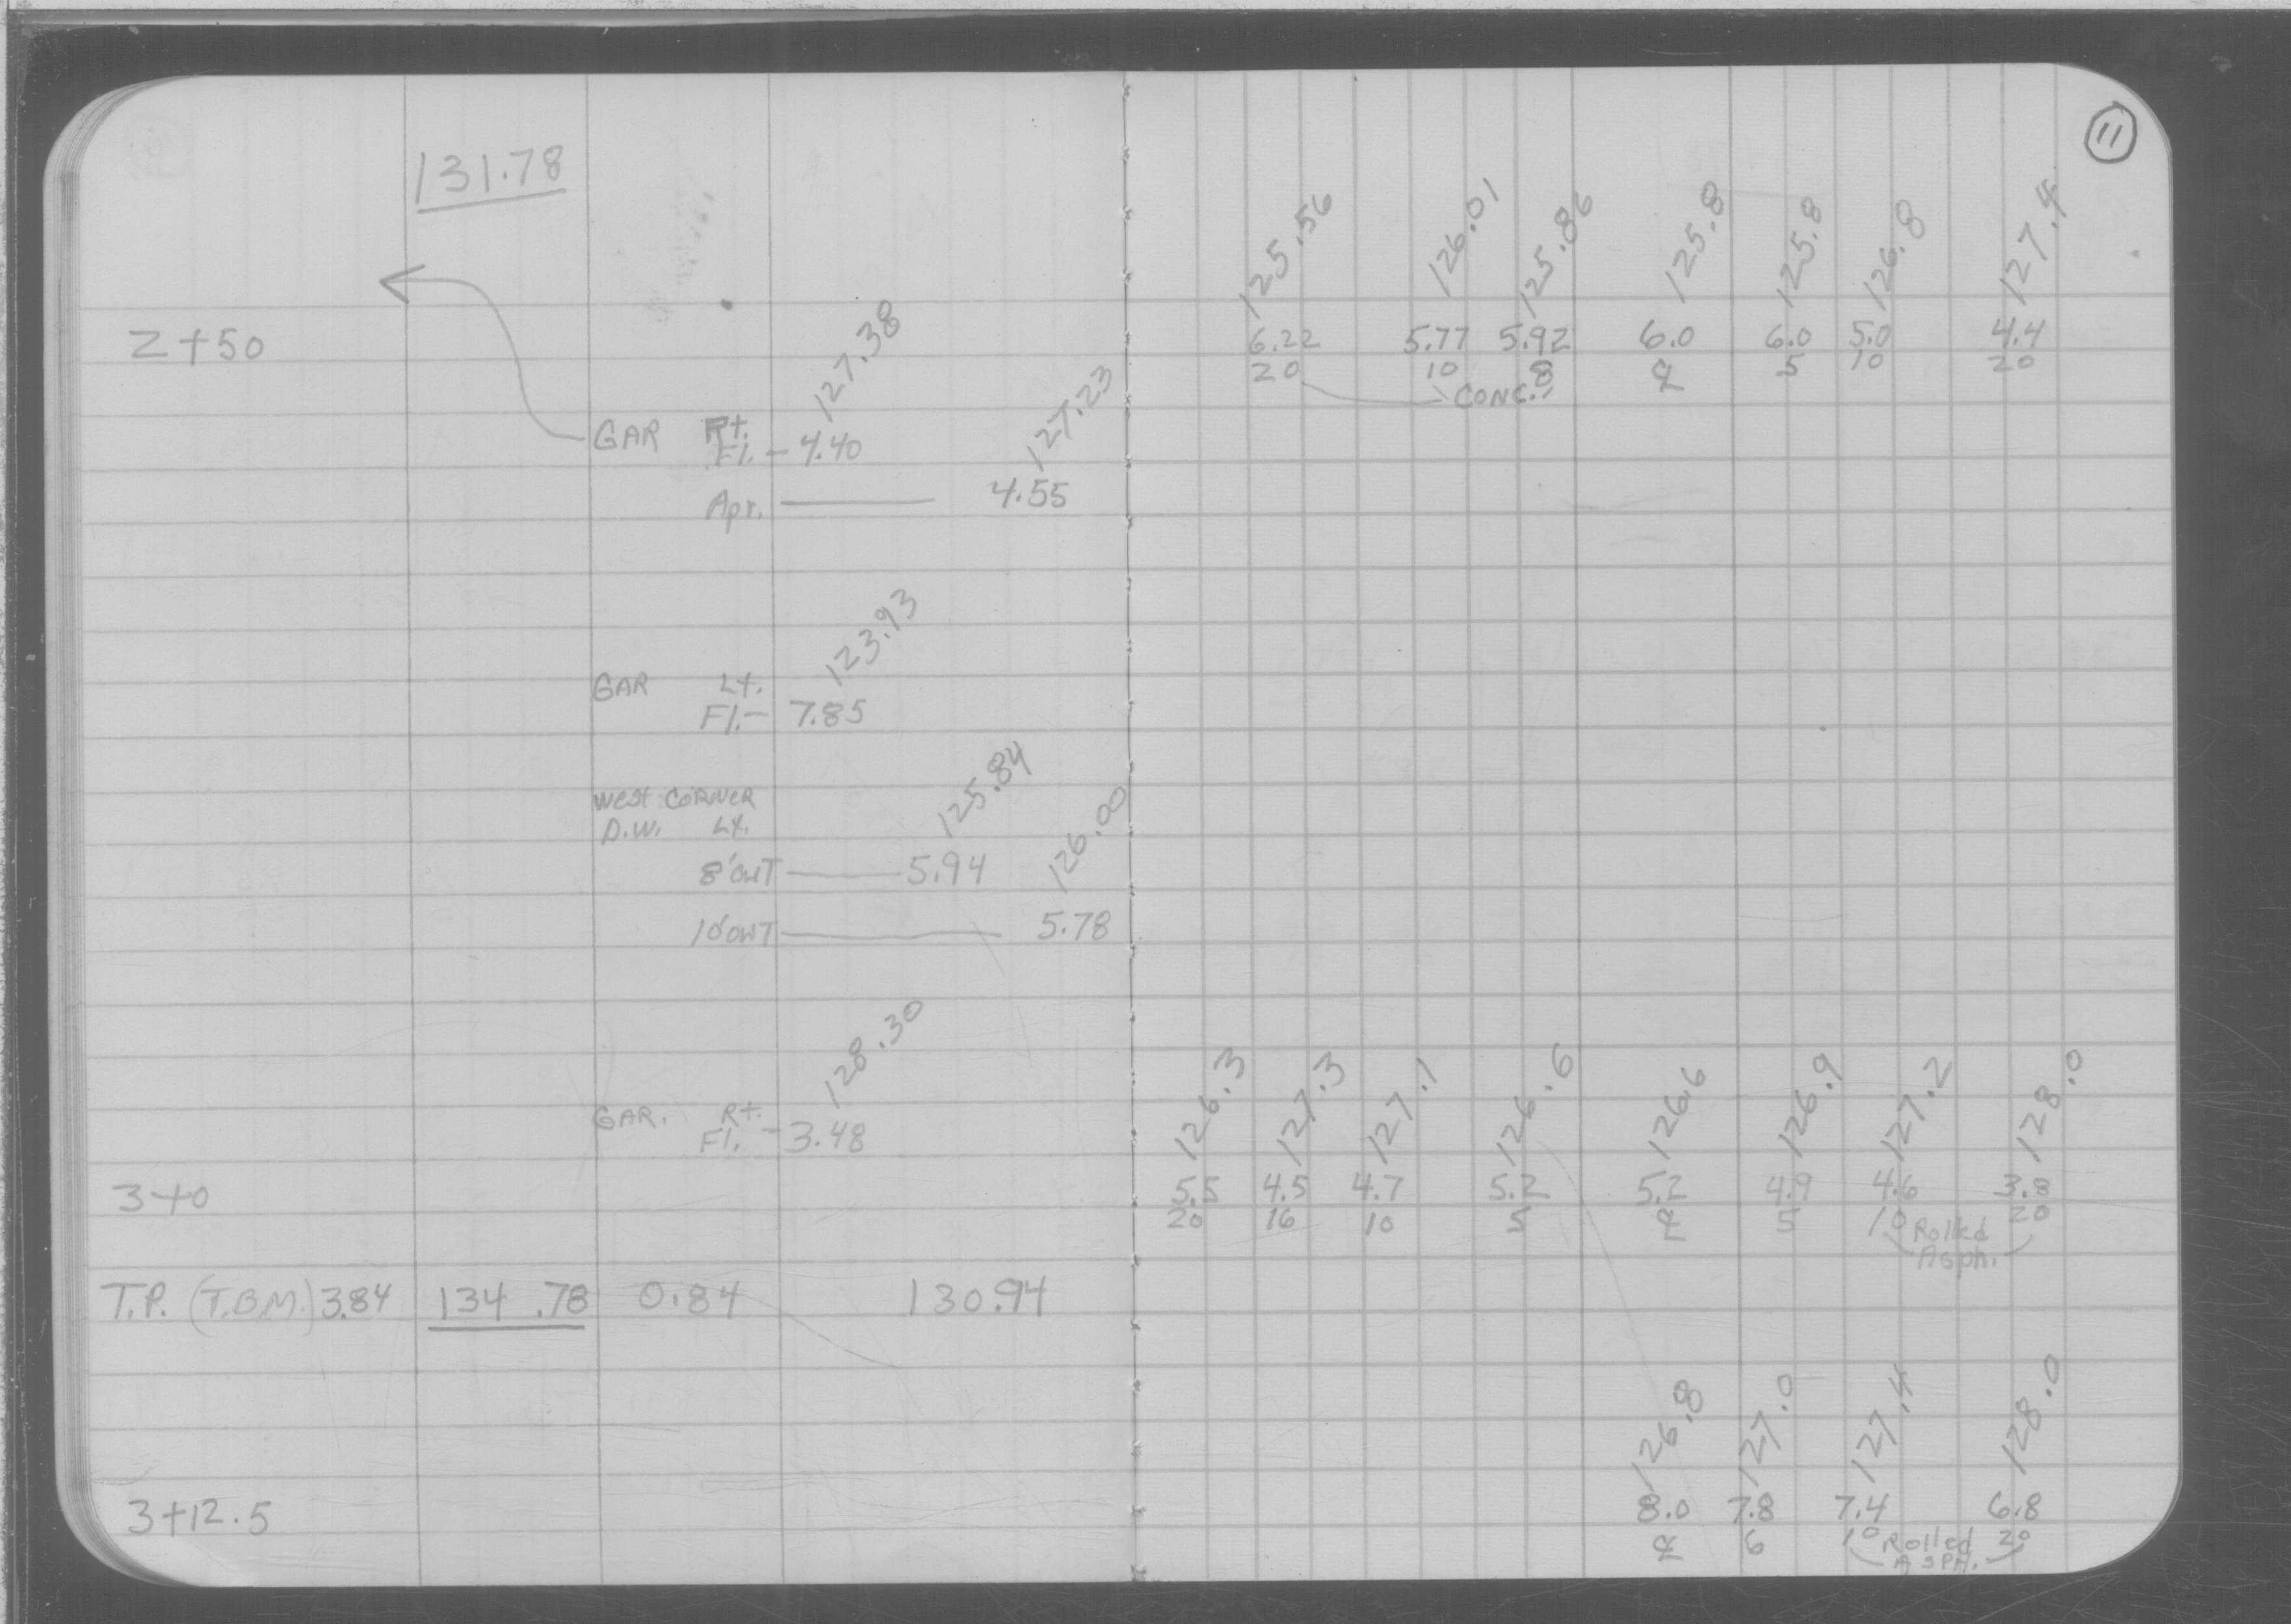 11
131.78
125.56 126.01 125.86 125.8 125.8 126.8 127.4
2+50
6.22 5.77 5.92 6.0 6.0 5.0 4.4
20 10 8 ℄ 5 10 20
CONC.
127.38
GAR Rt.
Fl. - 4.40
127.23
Apr. 4.55
123.93
GAR Lt.
Fl. - 7.85
125.84
West CORNER
D.W. Lt.
126.00
8' OUT 5.94
10' OUT 5.78
128.30
GAR. Rt.
Fl. - 3.48
126.3 127.3 127.1 126.6 126.6 126.9 127.2 128.0
3+0
5.5 4.5 4.7 5.2 5.2 4.9 4.6 3.8
20 16 10 5 ℄ 5 10 20
Rolled
Asph.
T.P. (T.B.M.) 3.84 134.78 0.84 130.94
126.8 127.0 127.4 128.0
3+12.5
8.0 7.8 7.4 6.8
℄ 6 10 20
Rolled
ASPH.